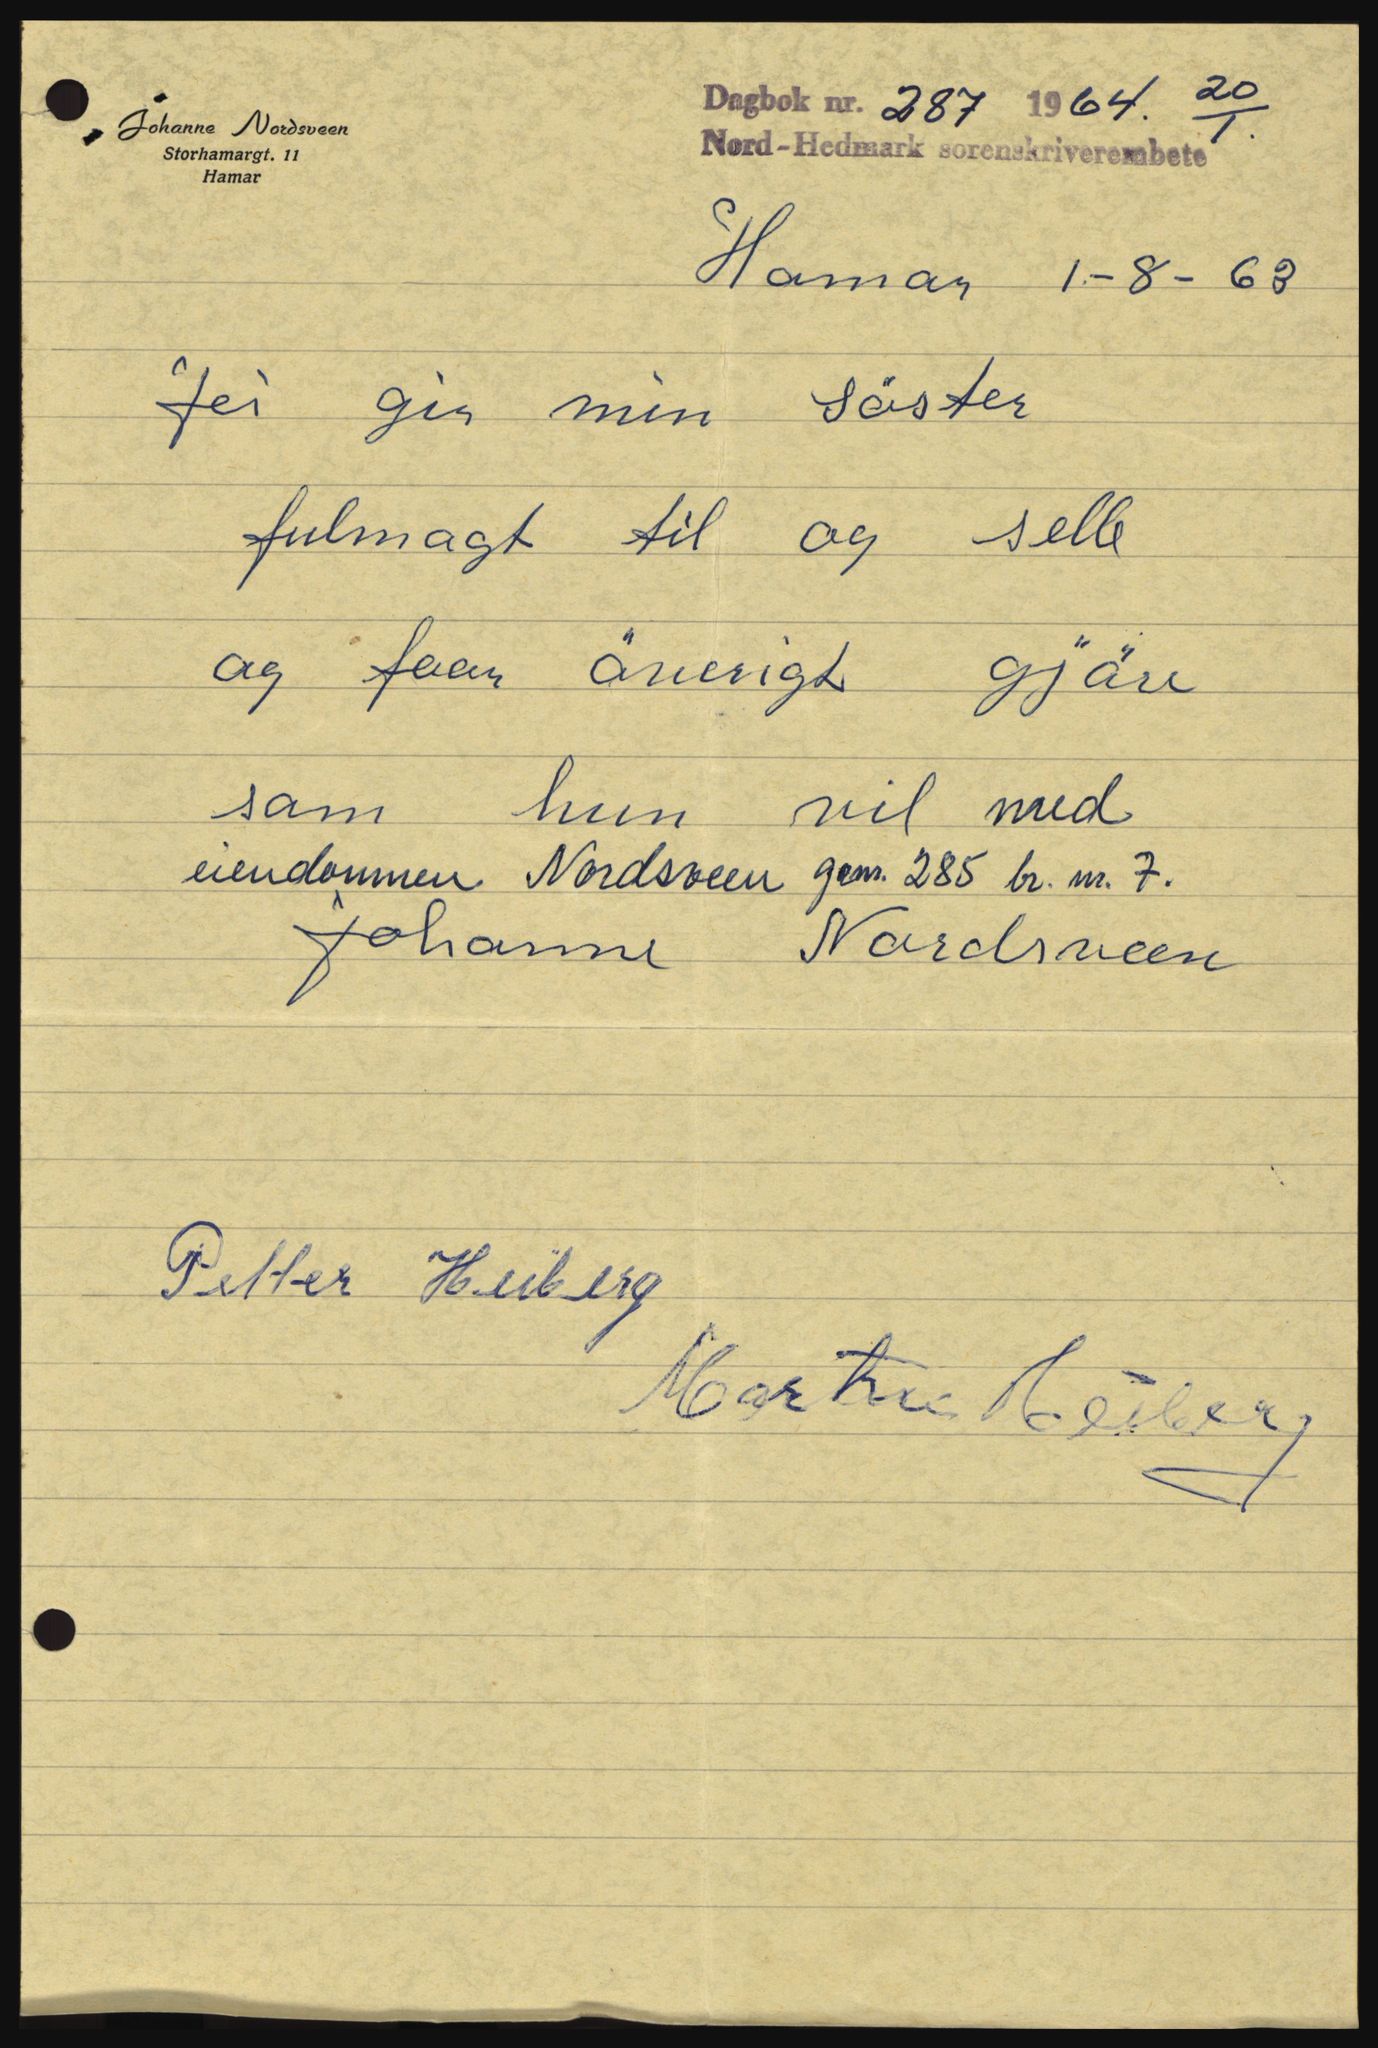 Johanne Nordsveen
Storhamargt. 11
Hamar
Dagbok nr. 287 1964. 20/1.
Nord-Hedmark sorenskriverembete
Hamar 1-8-63
Jei gir min söster
fulmagt til og selle
og for överigt gjöre
som hun vil med
eiendommen Nordsveen gnr. 285 br. nr. 7.
Johanne Nordsveen
Petter Heiberg
Heiberg